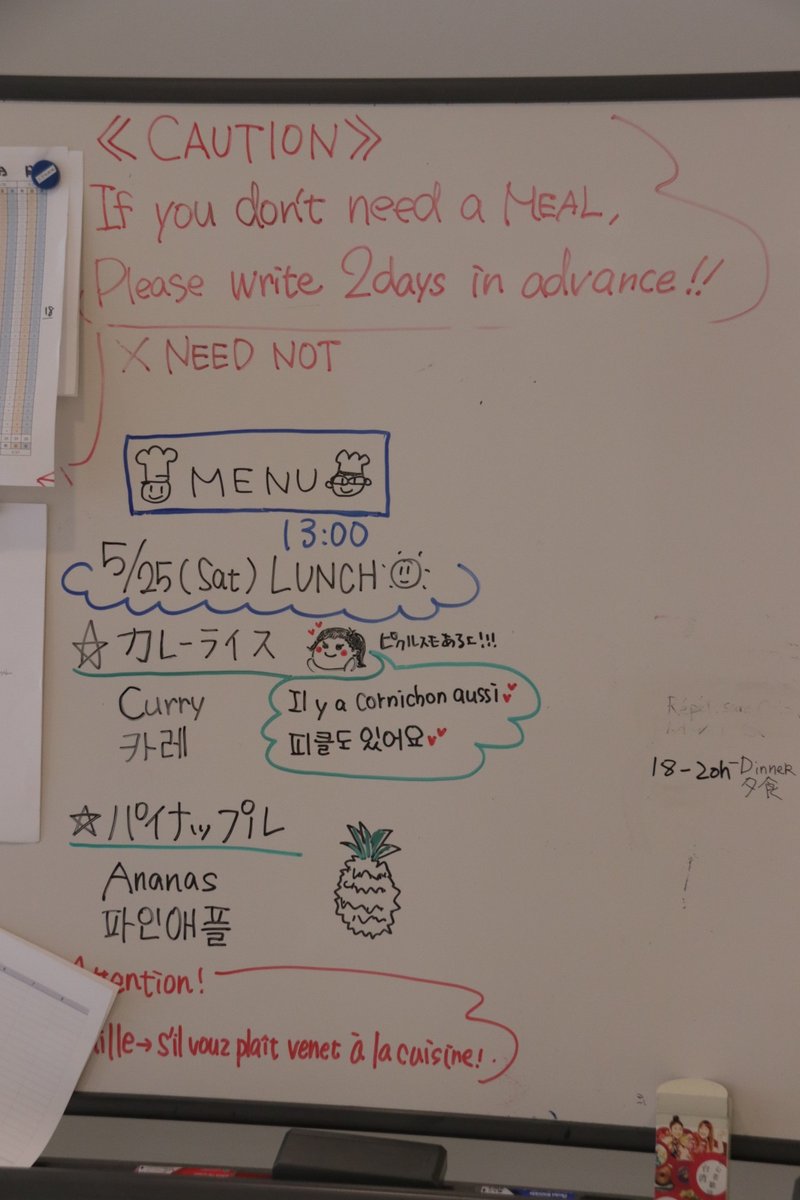 ≪CAUTION≫
If you don't need a MEAL,
Please write 2days in advance!!
× NEED NOT
18
MENU
13:00
5/25(Sat) LUNCH
☆カレーライス
ピクルスもあるよ!!!
Curry
Il y a cornichon aussi
카레
피클도 있어요
18-20h-Dinner
夕食
☆パイナップル
Ananas
파인애플
Attention!
ille→s'il vouz plaît venet à la cuisine!